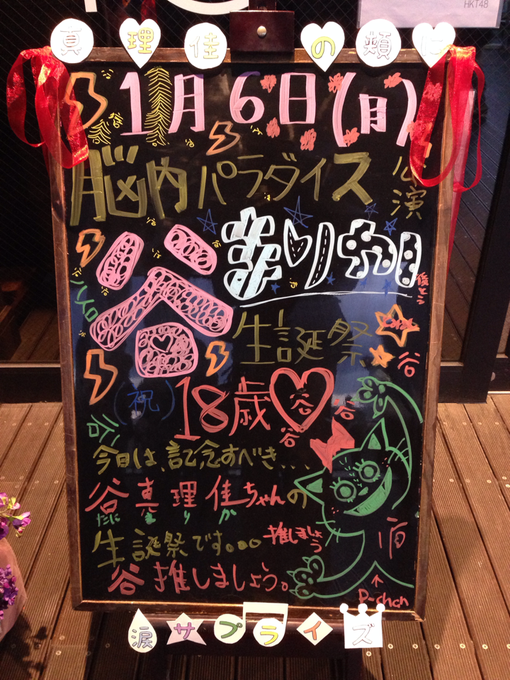 HKT48
真理佳の類に
1月6日(月)
脳内パラダイス公演
谷まりか
生誕祭
谷
(祝)18歳
谷
谷
谷
谷
今日は、記念すべき...
谷真理佳ちゃんの
たに ま り か
生誕祭です。。。
推しましょう
谷推しましょう。
↑
P-chan
涙サプライズ